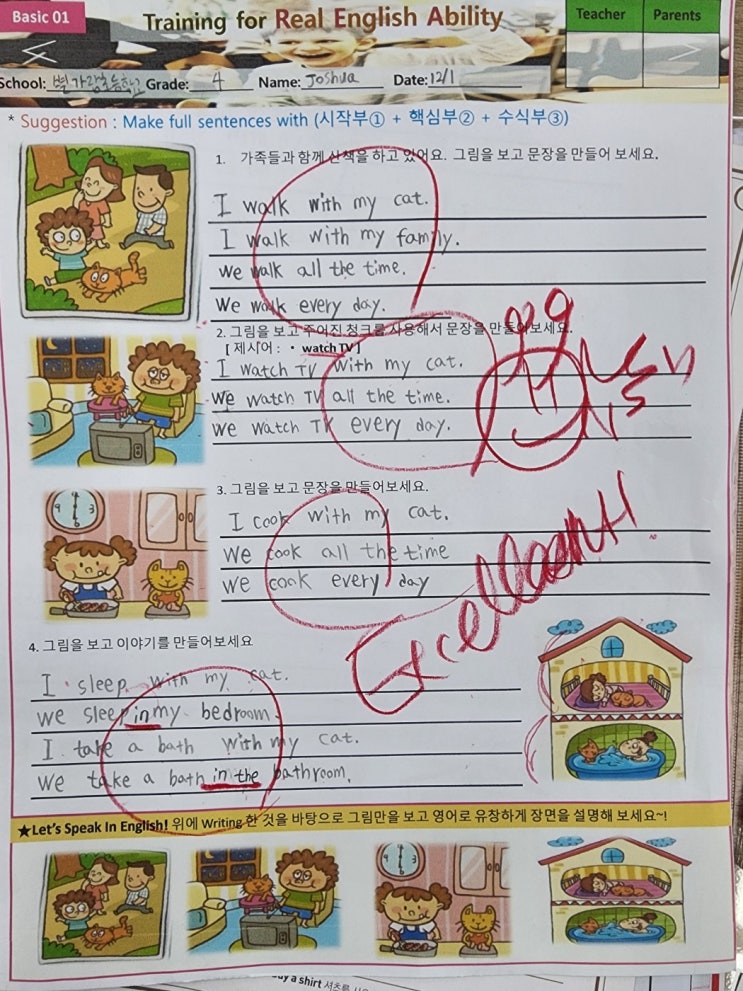 Basic 01
Training for Real English Ability
Teacher Parents
School: 별가람초등학교 Grade: 4 Name: Joshua Date: 12/1
* Suggestion : Make full sentences with (시작부① + 핵심부② + 수식부③)
1. 가족들과 함께 산책을 하고 있어요. 그림을 보고 문장을 만들어 보세요.
I walk with my cat.
I walk with my family.
we walk all the time.
We walk every day.
2. 그림을 보고 주어진 청크를 사용해서 문장을 만들어보세요.
[ 제시어 : • watch TV ]
I watch TV with my cat.
we watch TV all the time.
we watch TV every day.
3. 그림을 보고 문장을 만들어보세요.
I cook with my cat.
we cook all the time
we cook every day
Excellent!
4. 그림을 보고 이야기를 만들어보세요
I sleep with my cat.
we sleep in my bedroom.
I take a bath with my cat.
we take a bath in the bathroom.
★Let's Speak In English! 위에 Writing 한 것을 바탕으로 그림만을 보고 영어로 유창하게 장면을 설명해 보세요~!
buy a shirt